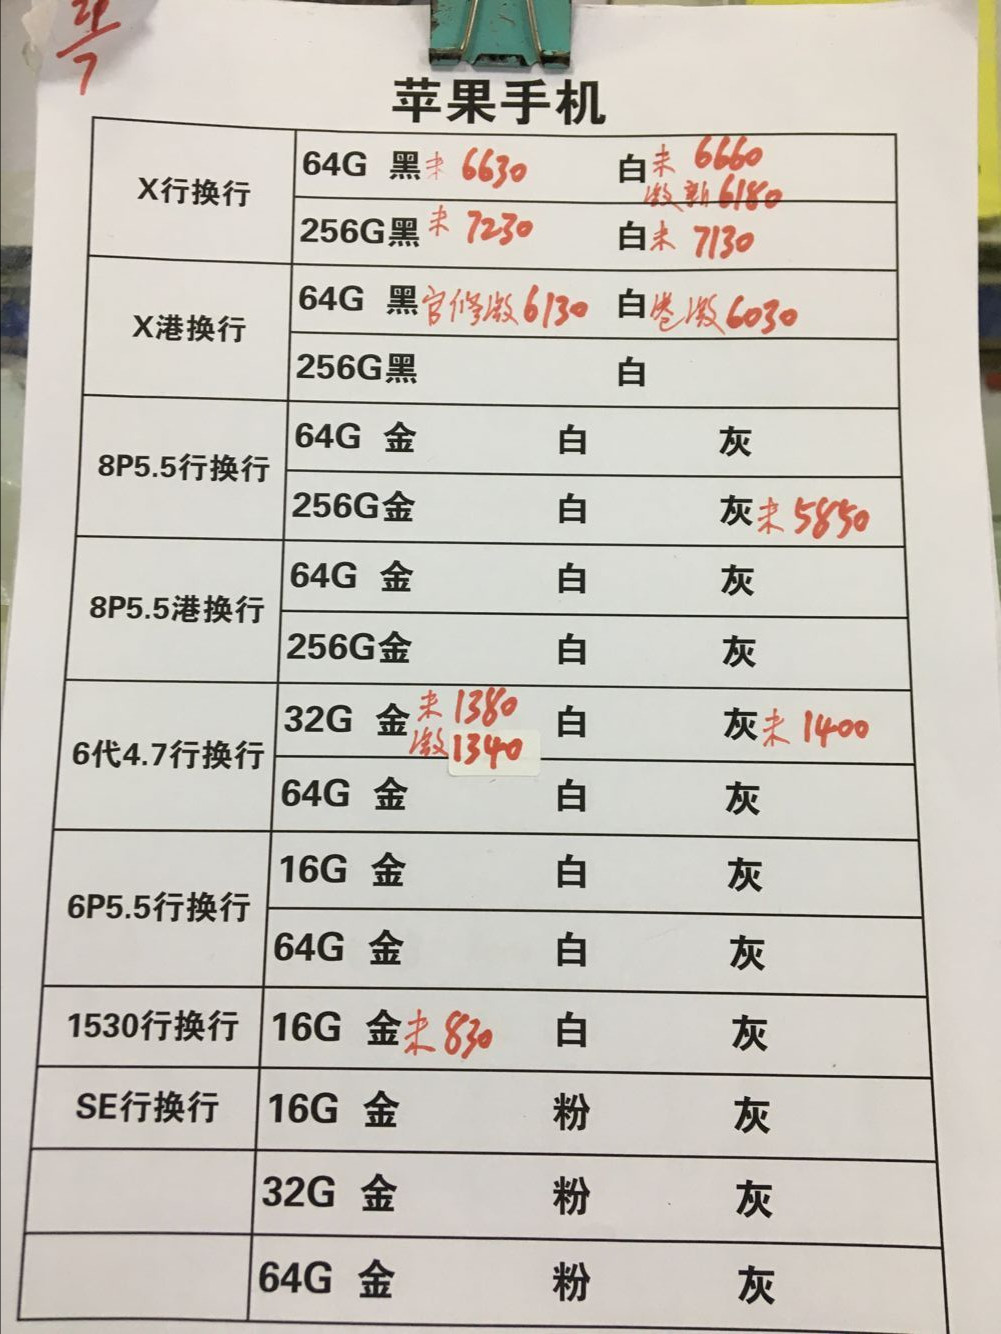 7
苹果手机
X行换行
64G 黑 未 6630 白 未 6660
激新 6180
256G 黑 未 7230 白 未 7130
X港换行
64G 黑 官修激 6130 白 港激 6030
256G 黑 白
8P5.5行换行
64G 金 白 灰
256G 金 白 灰 未 5850
8P5.5港换行
64G 金 白 灰
256G 金 白 灰
6代4.7行换行
32G 金 未 1380 白 灰 未 1400
激 1340
64G 金 白 灰
6P5.5行换行
16G 金 白 灰
64G 金 白 灰
1530行换行 16G 金 未 830 白 灰
SE行换行 16G 金 粉 灰
32G 金 粉 灰
64G 金 粉 灰